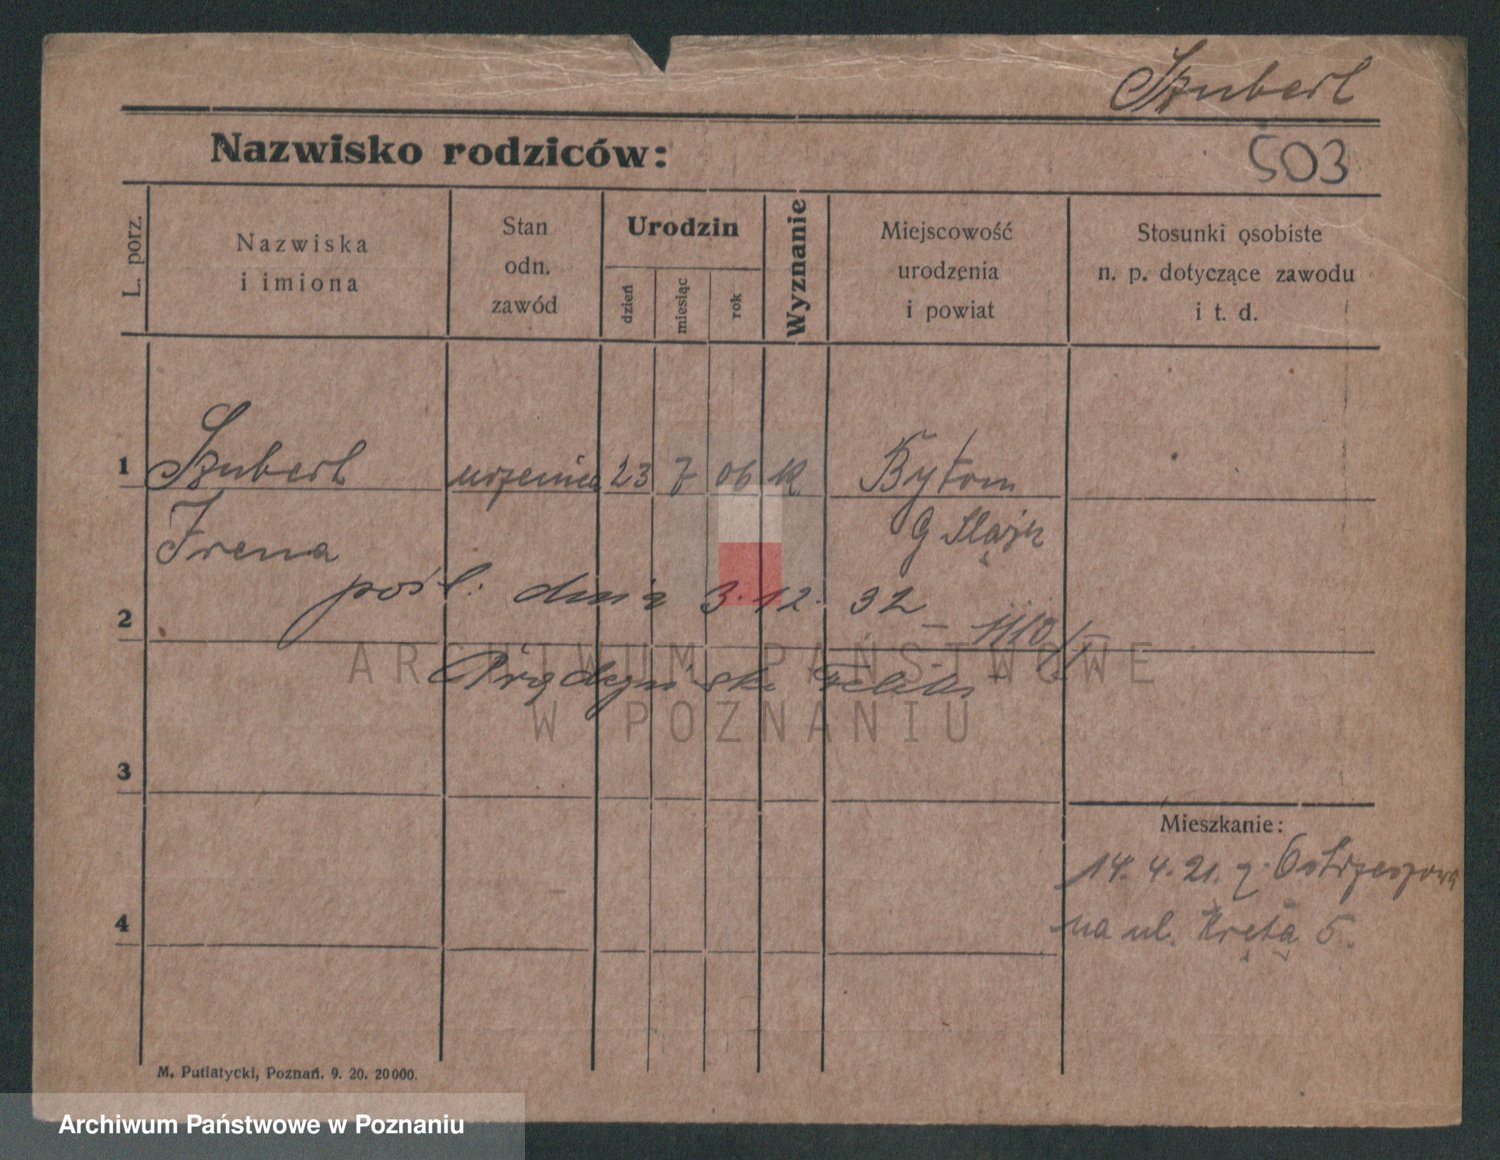 Szuberl
Nazwisko rodziców:
503
L. porz.
Nazwiska
i imiona
Stan
odn.
zawód
Urodzin
dzień
miesiąc
rok
Wyznanie
Miejscowość
urodzenia
i powiat
Stosunki osobiste
n. p. dotyczące zawodu
i t. d.
1 Szuberl 23 7 06 K Bytom
Irena G Śląsk
pośl. dnia 3.12. 32
2
ARCHIWUM PAŃSTWOWE
W POZNANIU
3
Mieszkanie:
14. 4. 21. z Ostrzeszowa
na ul. Kręta 5.
4
M. Putiatycki, Poznań. 9. 20. 20000.
Archiwum Państwowe w Poznaniu